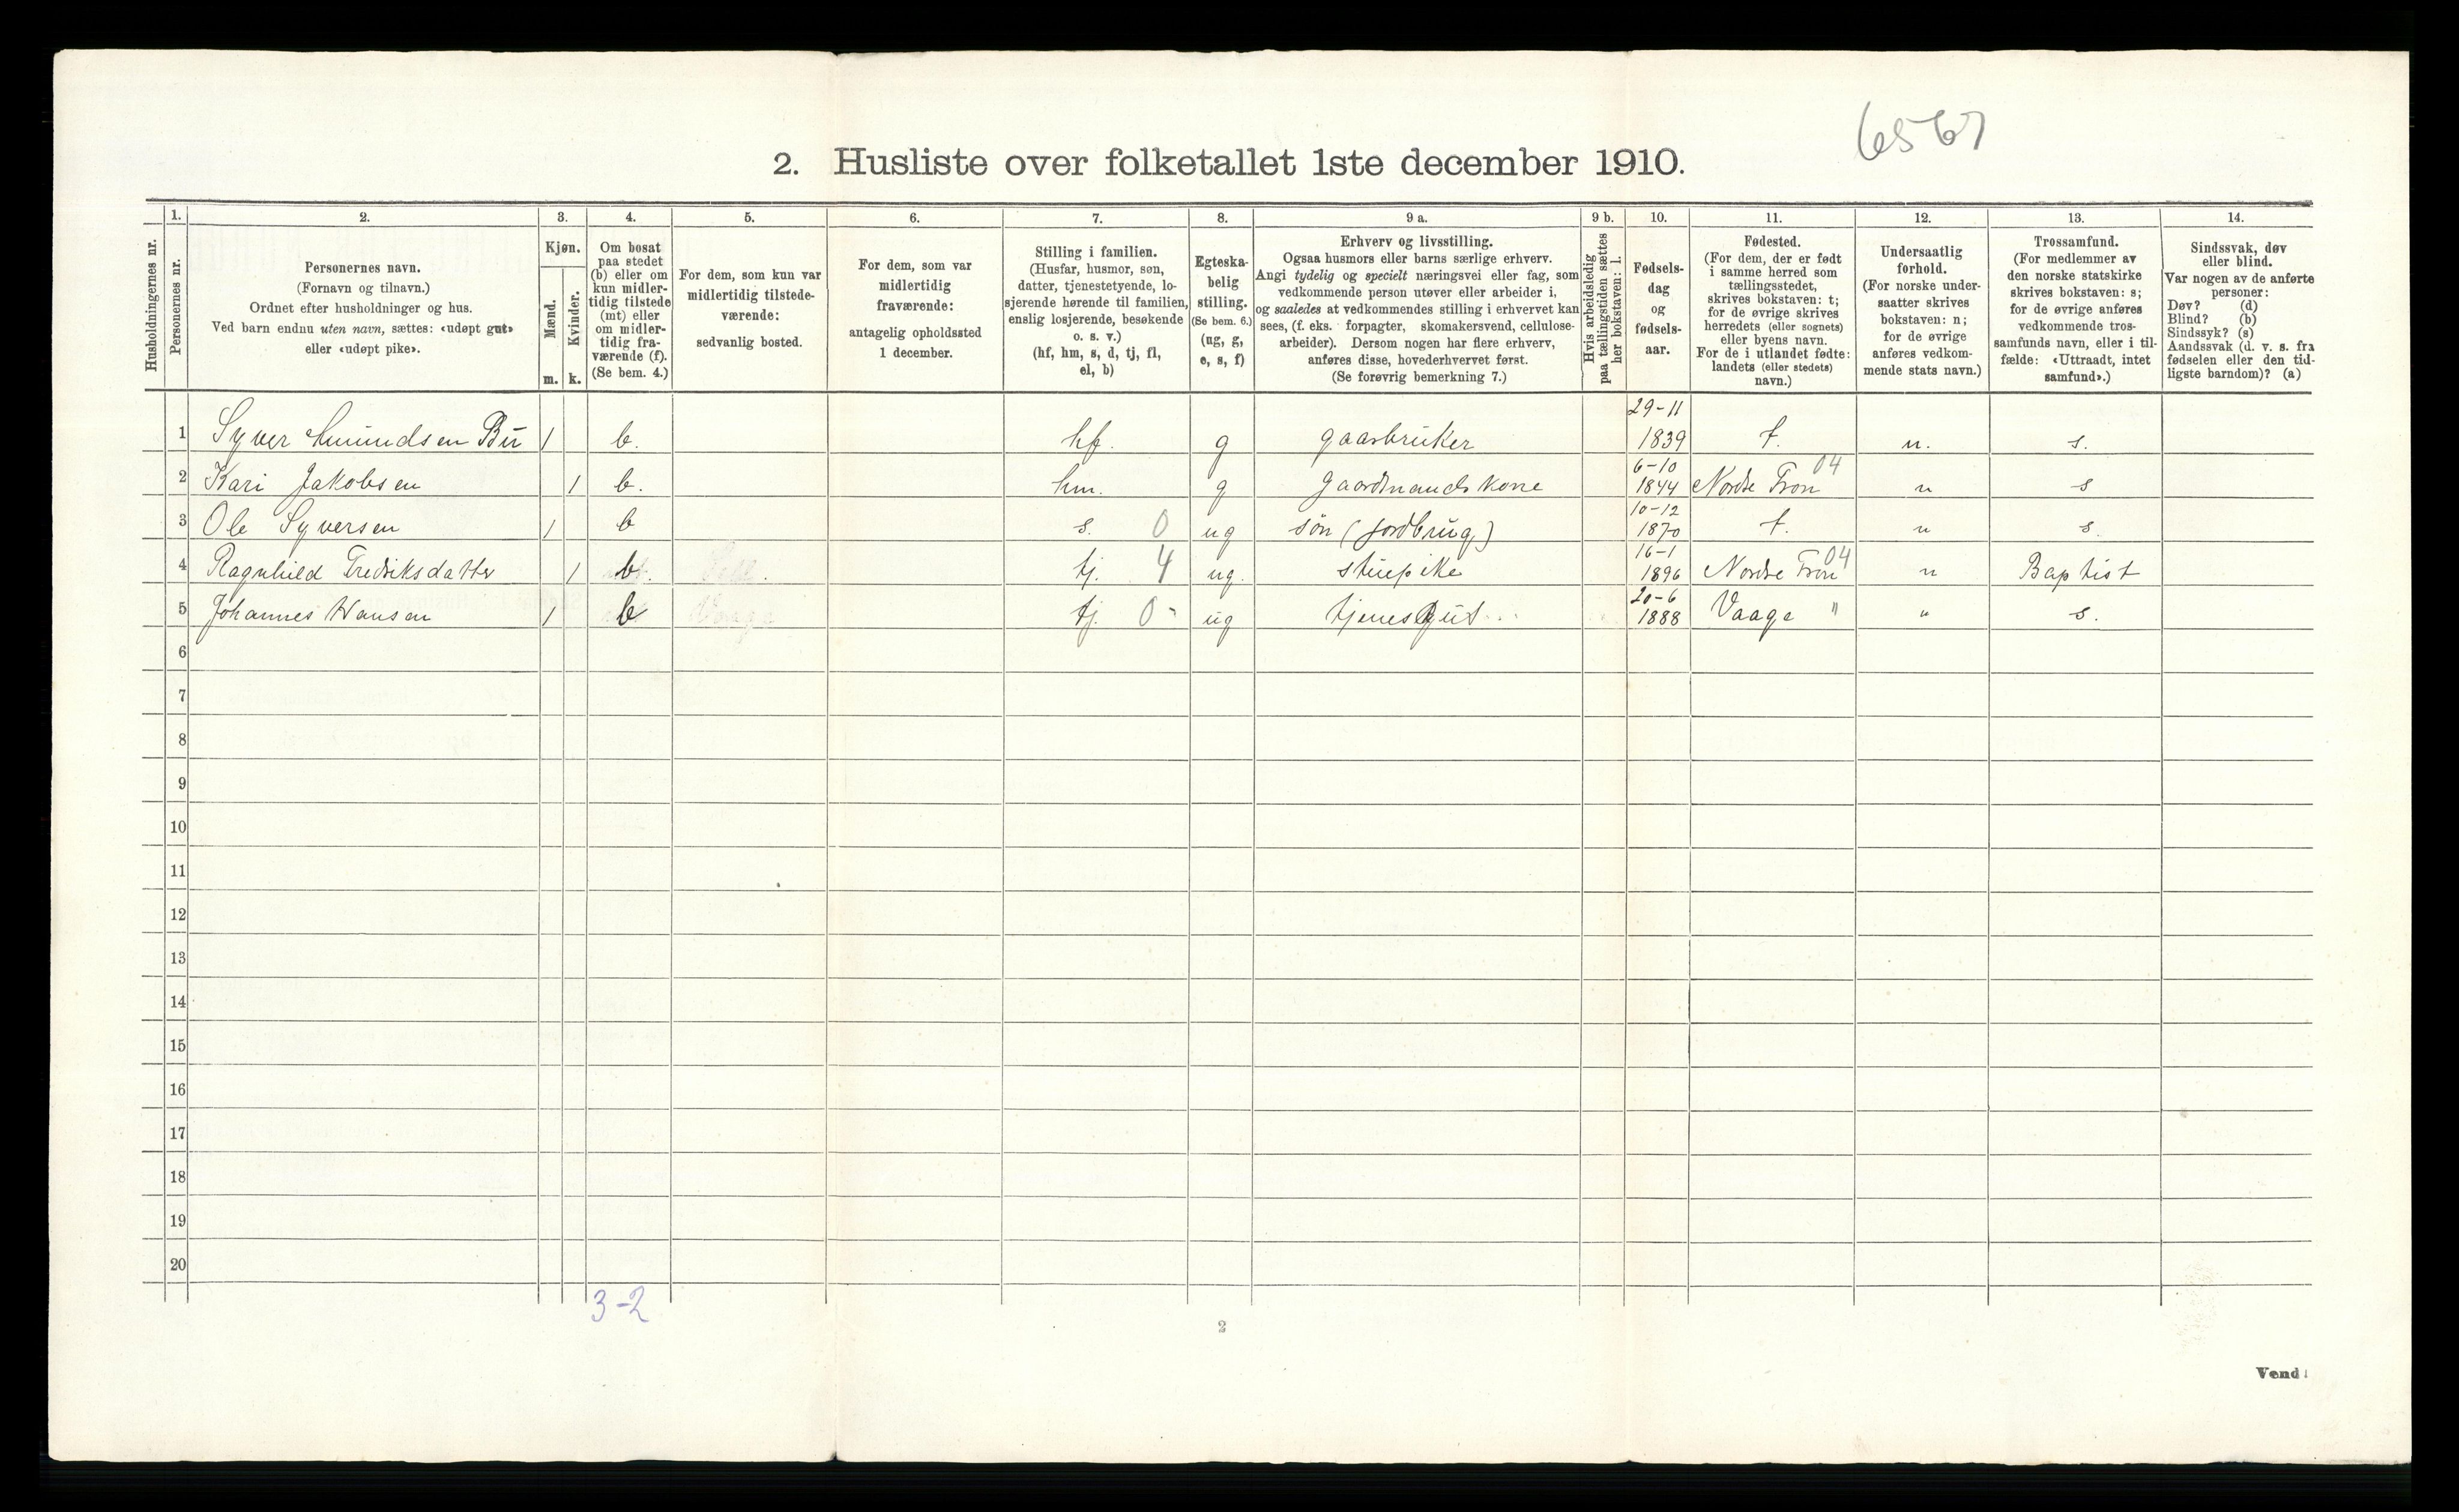 6567
2. Husliste over folketallet 1ste december 1910.
Husholdningernes nr.
1.
Personernes nr.
2.
Personernes navn.
(Fornavn og tilnavn.)
Ordnet efter husholdninger og hus.
Ved barn endnu uten navn, sættes: «udøpt gut»
eller «udøpt pike».
3.
Kjøn.
Mænd.
Kvinder.
m. k.
4.
Om bosat
paa stedet
(b) eller om
kun midler-
tidig tilstede
(mt) eller
om midler-
tidig fra-
værende (f).
(Se bem. 4.)
5.
For dem, som kun var
midlertidig tilstede-
værende:
sedvanlig bosted.
6.
For dem, som var
midlertidig
fraværende:
antagelig opholdssted
1 december.
7.
Stilling i familien.
(Husfar, husmor, søn,
datter, tjenestetyende, lo-
sjerende hørende til familien,
enslig losjerende, besøkende
o. s. v.)
(hf, hm, s, d, tj, fl,
el, b)
8.
Egteska-
belig
stilling.
(Se bem. 6.)
(ug, g,
e, s, f)
9 a.
Erhverv og livsstilling.
Ogsaa husmors eller barns særlige erhverv.
Angi tydelig og specielt næringsvei eller fag, som
vedkommende person utøver eller arbeider i,
og saaledes at vedkommendes stilling i erhvervet kan
sees, (f. eks. forpagter, skomakersvend, cellulose-
arbeider). Dersom nogen har flere erhverv,
anføres disse, hovederhvervet først.
(Se forøvrig bemerkning 7.)
9 b.
Hvis arbeidsledig
paa tællingstiden sættes
her bokstaven: l.
10.
Fødsels-
dag
og
fødsels-
aar.
11.
Fødested.
(For dem, der er født
i samme herred som
tællingsstedet,
skrives bokstaven: t;
for de øvrige skrives
herredets (eller sognets)
eller byens navn.
For de i utlandet fødte:
landets (eller stedets)
navn.)
12.
Undersaatlig
forhold.
(For norske under-
saatter skrives
bokstaven: n;
for de øvrige
anføres vedkom-
mende stats navn.)
13.
Trossamfund.
(For medlemmer av
den norske statskirke
skrives bokstaven: s;
for de øvrige anføres
vedkommende tros-
samfunds navn, eller i til-
fælde: «Uttraadt, intet
samfund».)
14.
Sindssvak, døv
eller blind.
Var nogen av de anførte
personer:
Døv? (d)
Blind? (b)
Sindssyk? (s)
Aandssvak (d. v. s. fra
fødselen eller den tid-
ligste barndom)? (a)
1 Syver Amundsen Bu 1 b. hf. g gaarbruker 29-11 1839 t. n. s.
2 Kari Jakobsen 1 b. hm. g gaardmands kone 6-10 1844 Nordre Fron 04 n s
3 Ole Syversen 1 b s. 0 ug søn (jordbrug) 10-12 1870 t. n s.
4 Ragnhild Fredriksdatter 1 b. tj. 4 ug. stuepike 16-1 1896 Nordre Fron 04 n Baptist
5 Johannes Hansen 1 b Vaage tj. 0- ug tjenesgut 20-6 1888 Vaage " " s.
6
7
8
9
10
11
12
13
14
15
16
17
18
19
20
3-2
2
Vend!